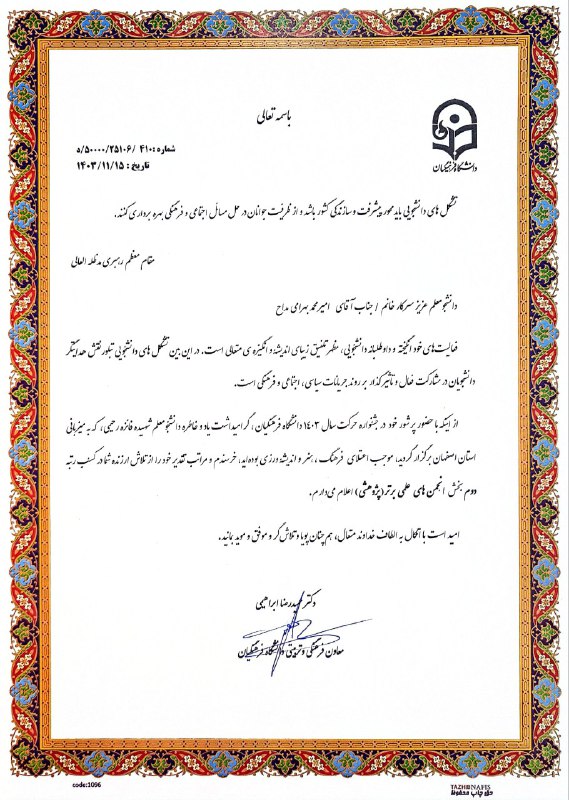 باسمه تعالی
دانشگاه فرهنگیان
شماره: ۴۱۰/ ۵۰۰۰۰/۲۵۱۰۶/د
تاریخ: ۱۴۰۳/۱۱/۱۵
تشکل های دانشجویی باید محور پیشرفت و سازندگی کشور باشد و از ظرفیت جوانان در حل مسائل اجتماعی و فرهنگی بهره برداری کنند.
مقام معظم رهبری مدظله العالی
دانشجو معلم عزیز سرکار خانم / جناب آقای امیرمحمد بهرامی مداح
فعالیت‌های خود انگیخته و داوطلبانه دانشجویی، مظهر تلفیق زیبای اندیشه و انگیزه ی متعالی است. در این بین تشکل های دانشجویی تبلور نقش هدایتگر
دانشجویان در مشارکت فعال و تأثیرگذار بر روند جریانات سیاسی، اجتماعی و فرهنگی است.
از اینکه با حضور پرشور خود در جشنواره حرکت سال ۱۴۰۳ دانشگاه فرهنگیان، گرامیداشت یاد و خاطره دانشجو معلم شهیده فائزه رحیمی، که به میزبانی
استان اصفهان برگزار گردید، موجب اعتلای فرهنگ، هنر و اندیشه ورزی بوده‌اید، خرسندم و مراتب تقدیر خود را از تلاش ارزنده شما در کسب رتبه
دوم بخش انجمن های علمی برتر (پژوهشی) اعلام می‌دارم.
امید است با اتکال به الطاف خداوند متعال، هم چنان پویا و تلاش گر و موفق و موید بمانید.
دکتر حمیدرضا ابراهیمی
معاون فرهنگی و تربیتی دانشگاه فرهنگیان
code:1096
TAZHIB NAFIS
حق چاپ محفوظ